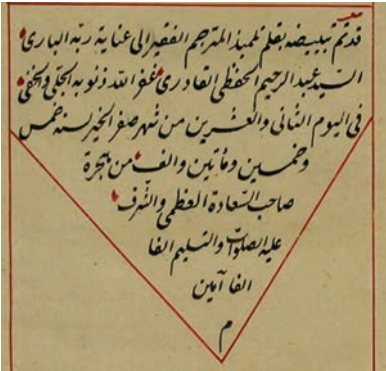 قد تم تبييضه بقلم تلميذ المترجم الفقير الى عناية ربه البارى
السيد عبد الرحيم الحفظى القادرى غفر الله ذنوبه الجلى والخفى
فى اليوم الثانى والعشرين من شهر صفر الخير لسنه خمس
وخمسين ومأتين والف من هجرة
صاحب السعادة العظمى والشرف
عليه الصلوات والتسليم الفا
الفا آمين
م